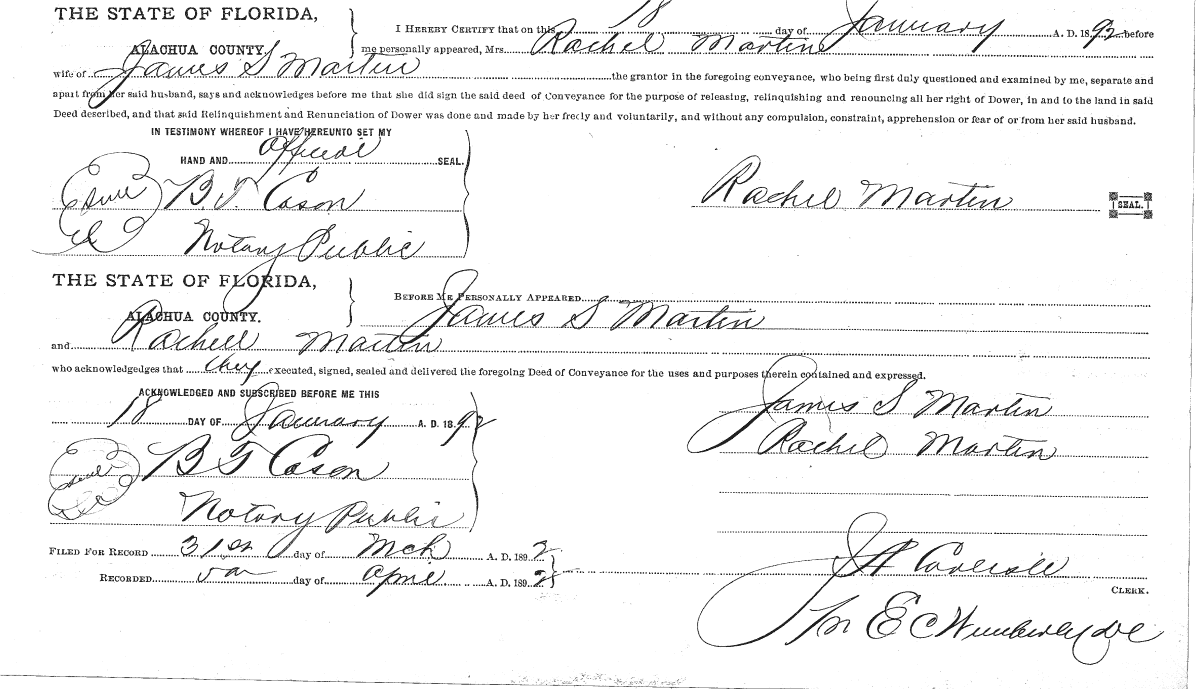 THE STATE OF FLORIDA,
ALACHUA COUNTY.
I HEREBY CERTIFY that on this 18 day of January A. D. 1892 before
me personally appeared, Mrs. Rachel Martin
wife of James S Martin the grantor in the foregoing conveyance, who being first duly questioned and examined by me, separate and
apart from her said husband, says and acknowledges before me that she did sign the said deed of Conveyance for the purpose of releasing, relinquishing and renouncing all her right of Dower, in and to the land in said
Deed described, and that said Relinquishment and Renunciation of Dower was done and made by her freely and voluntarily, and without any compulsion, constraint, apprehension or fear of or from her said husband.
IN TESTIMONY WHEREOF I HAVE HEREUNTO SET MY
HAND AND official SEAL.
B. T. Cason
Notary Public
Rachel Martin
SEAL.
THE STATE OF FLORIDA,
ALACHUA COUNTY.
BEFORE ME PERSONALLY APPEARED
James S Martin
and Rachell Martin
who acknowledgedges that they executed, signed, sealed and delivered the foregoing Deed of Conveyance for the uses and purposes therein contained and expressed.
ACKNOWLEDGED AND SUBSCRIBED BEFORE ME THIS
18 DAY OF January A. D. 1892
B T Cason
Notary Public
James S Martin
Rachel Martin
FILED FOR RECORD 31st day of Mch A. D. 1892
RECORDED day of April A. D. 1892
J A Carlisle
CLERK.
E C Wimberley DC